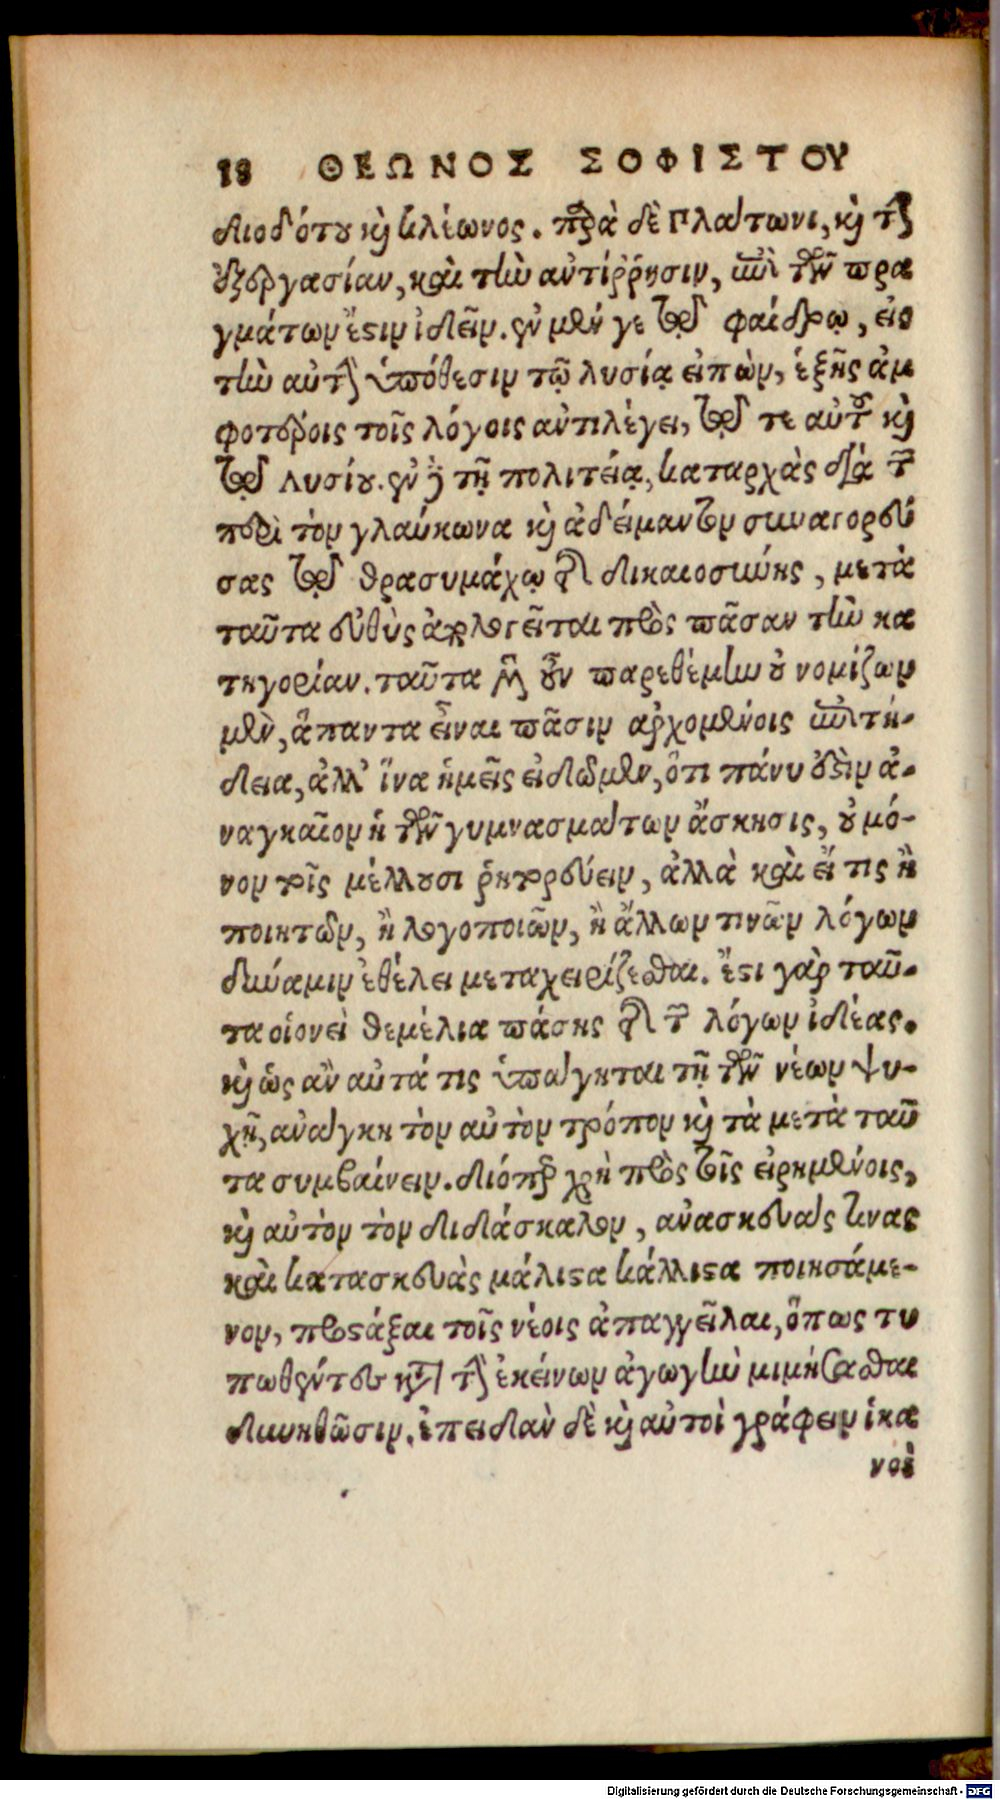 18 ΘΕΩΝΟΣ ΣΟΦΙΣΤΟΥ
διοδότου καὶ κλέωνος. παρὰ δὲ Πλάτωνι, καὶ τὴν
ἐξεργασίαν, καὶ τὴν ἀντίῤῥησιν, ἐπὶ τῶν πρα
γμάτων ἔστιν ἰδεῖν. ἐν μέν γε τῷ φαίδρῳ, εἰς
τὴν αὐτὴν ὑπόθεσιν τῷ λυσίᾳ εἰπὼν, ἑξῆς ἀμ
φοτέροις τοῖς λόγοις ἀντιλέγει, τῷ τε αὐτοῦ καὶ
τῷ λυσίου. ἐν δὲ τῇ πολιτείᾳ, καταρχὰς διὰ τῶν
περὶ τὸν γλαύκωνα καὶ ἀδείμαντον συναγορεύ
σας τῷ θρασυμάχῳ περὶ δικαιοσύνης, μετὰ
ταῦτα εὐθὺς ἀπολογεῖται πρὸς πᾶσαν τὴν κα
τηγορίαν. ταῦτα μὲν οὖν παρεθέμην οὐ νομίζων
μὲν, ἅπαντα εἶναι πᾶσιν ἀρχομένοις ἐπιτή-
δεια, ἀλλ' ἵνα ἡμεῖς εἰδῶμεν, ὅτι πάνυ ἐστὶν ἀ-
ναγκαῖον ἡ τῶν γυμνασμάτων ἄσκησις, οὐ μό-
νον τοῖς μέλλουσι ῥητορεύειν, ἀλλὰ καὶ εἴ τις ἢ
ποιητῶν, ἢ λογοποιῶν, ἢ ἄλλων τινῶν λόγων
δύναμιν ἐθέλει μεταχειρίζεσθαι. ἔστι γὰρ ταῦ-
τα οἱονεὶ θεμέλια πάσης τῆς τῶν λόγων ἰδέας.
καὶ ὡς ἂν αὐτά τις ὑπάγηται τῇ τῶν νέων ψυ-
χῇ, ἀνάγκη τὸν αὐτὸν τρόπον καὶ τὰ μετὰ ταῦ
τα συμβαίνειν. διόπερ χρὴ πρὸς τοῖς εἰρημένοις,
καὶ αὐτὸν τὸν διδάσκαλον, ἀνασκευάς τινας
καὶ κατασκευὰς μάλιστα κάλλιστα ποιησάμε-
νον, προστάξαι τοῖς νέοις ἀπαγγεῖλαι, ὅπως τυ
πωθέντες κατὰ τὴν ἐκείνων ἀγωγὴν μιμήσασθαι
δυνηθῶσιν. ἐπειδὰν δὲ καὶ αὐτοὶ γράφειν ἱκα
νοὶ
Digitalisierung gefördert durch die Deutsche Forschungsgemeinschaft - DFG